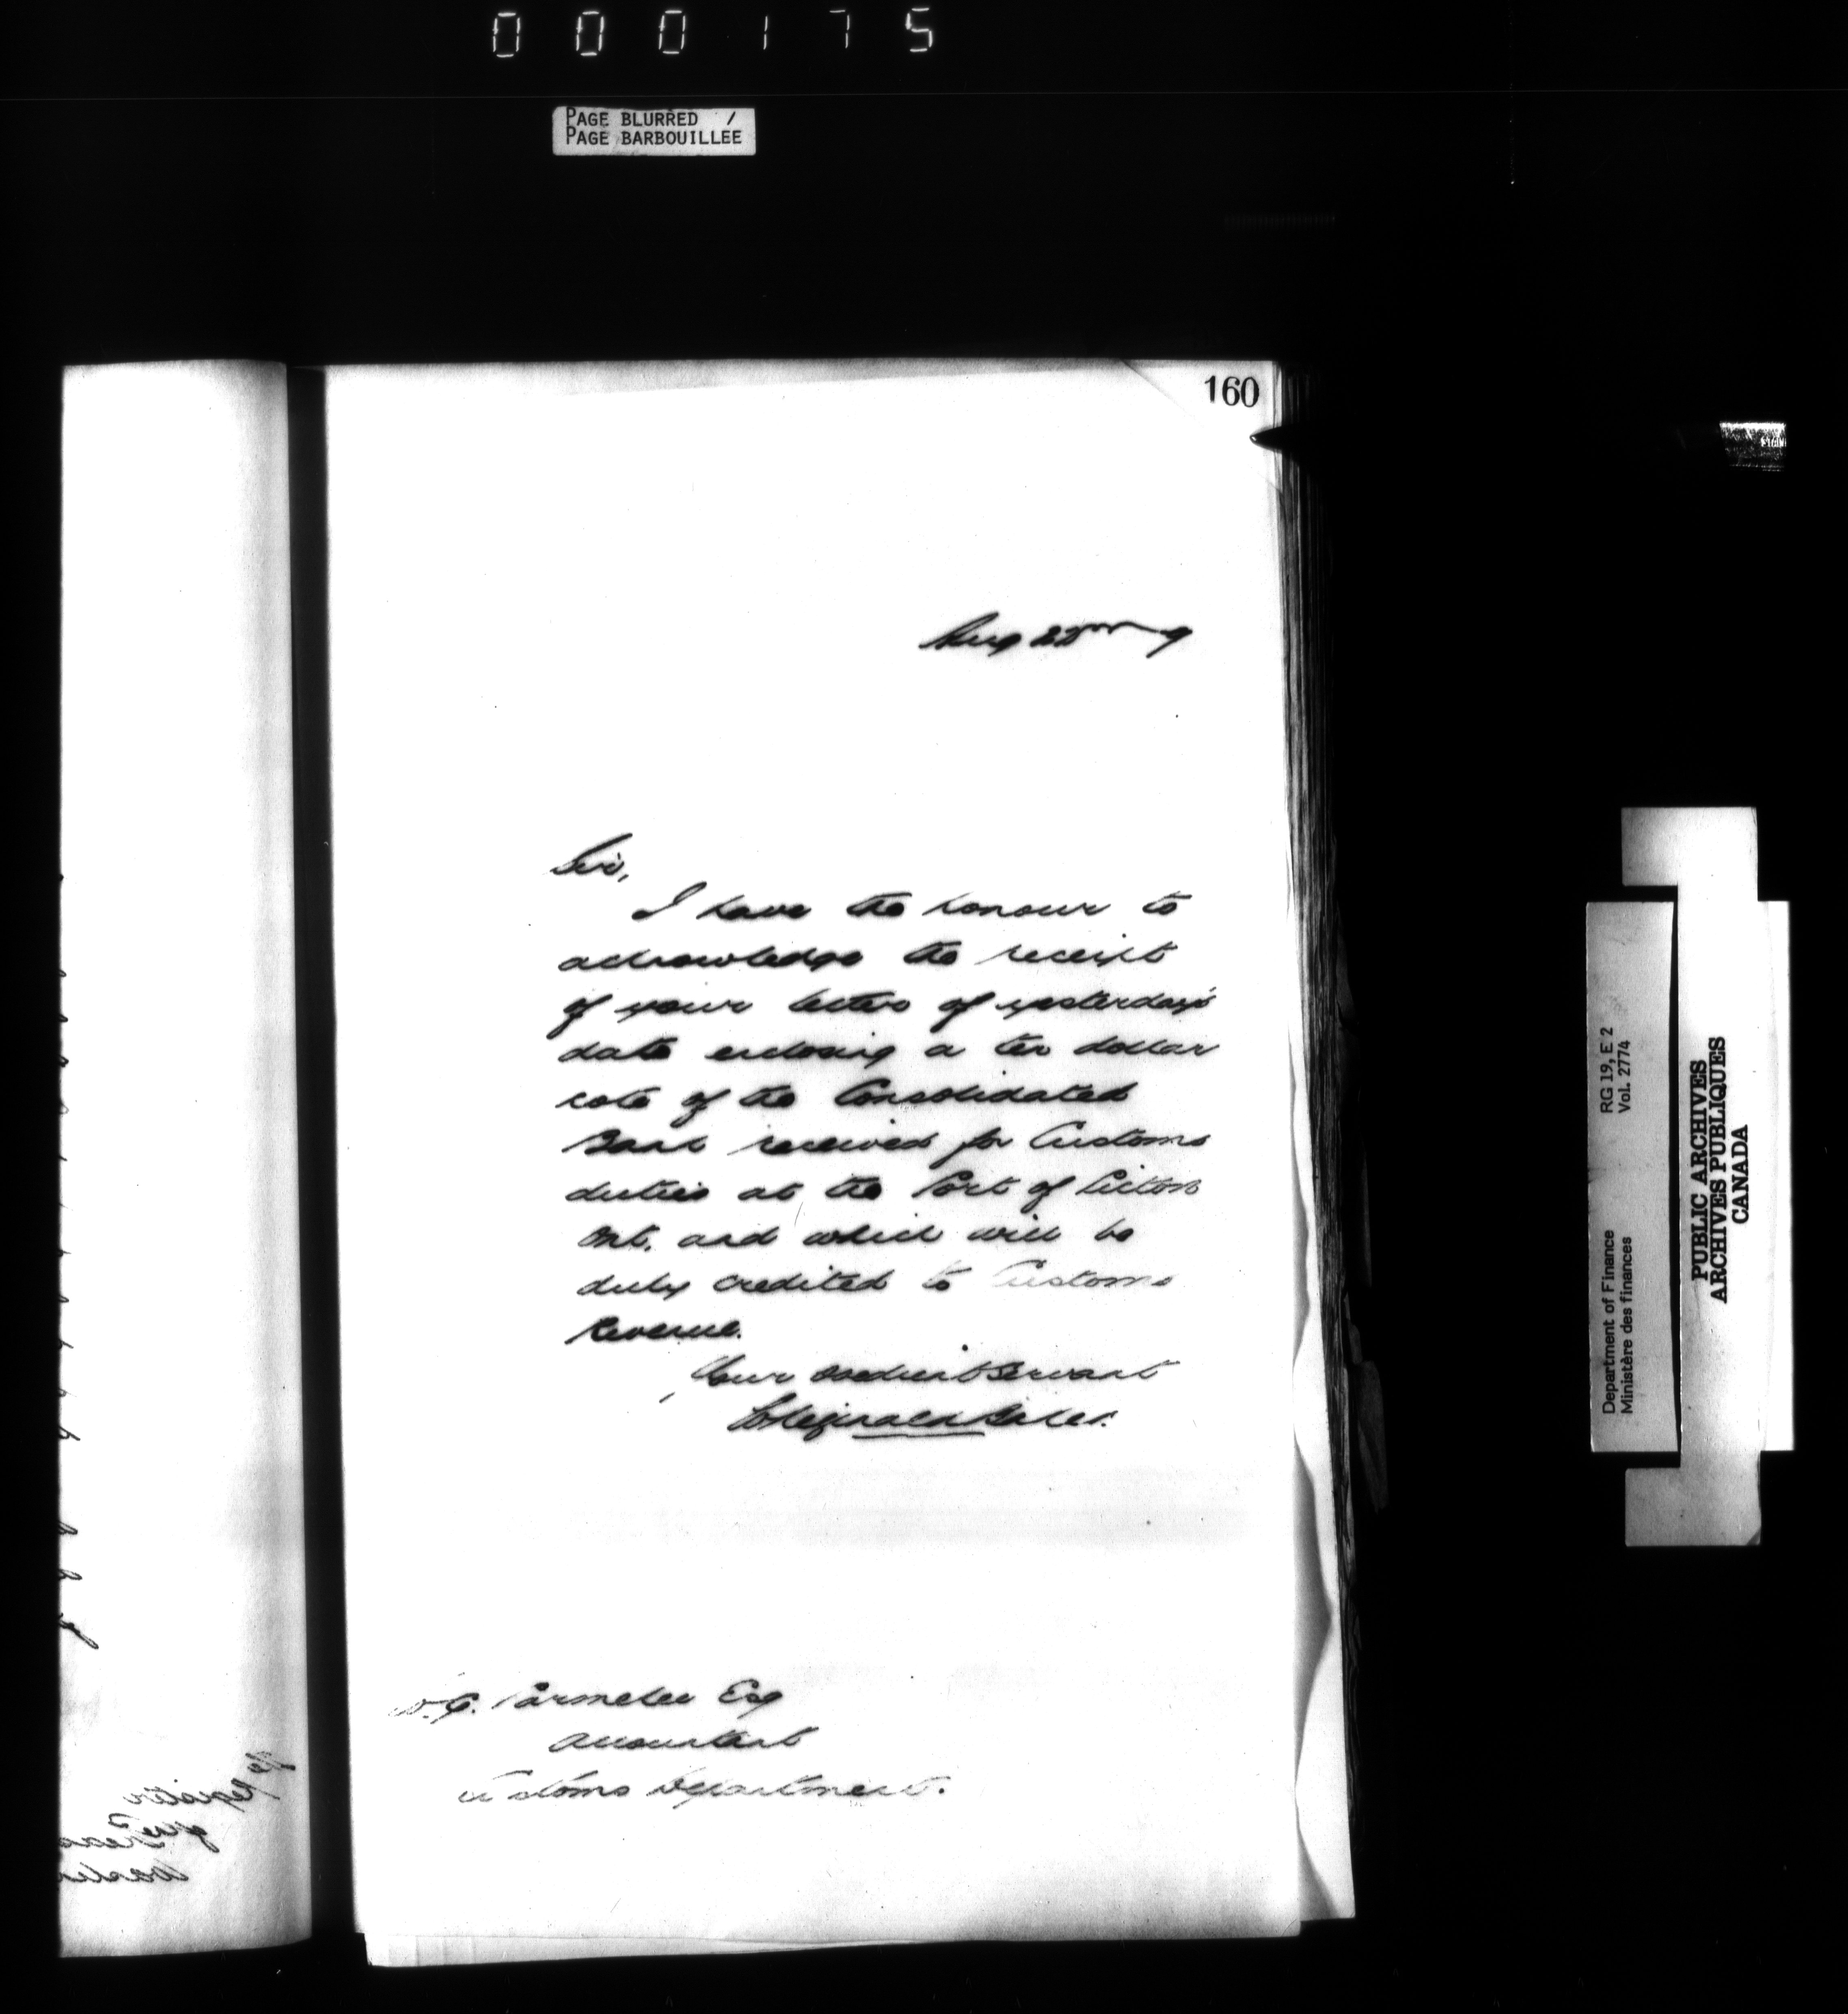 000175
PAGE BLURRED /
PAGE BARBOUILLEE
160
Aug 22nd 9
Sir,
I have the honour to
acknowledge the receipt
of your letter of yesterday's
date enclosing a ten dollar
note of the Consolidated
Bank received for Customs
duties at the Port of Picton
Ont. and which will be
duly credited to Customs
Revenue.
Your obedient Servant
Reginald Baker
W.G. Parmelee Esq
Accountant
Customs Department.
Department of Finance RG 19, E 2
Ministère des finances Vol. 2774
PUBLIC ARCHIVES
ARCHIVES PUBLIQUES
CANADA